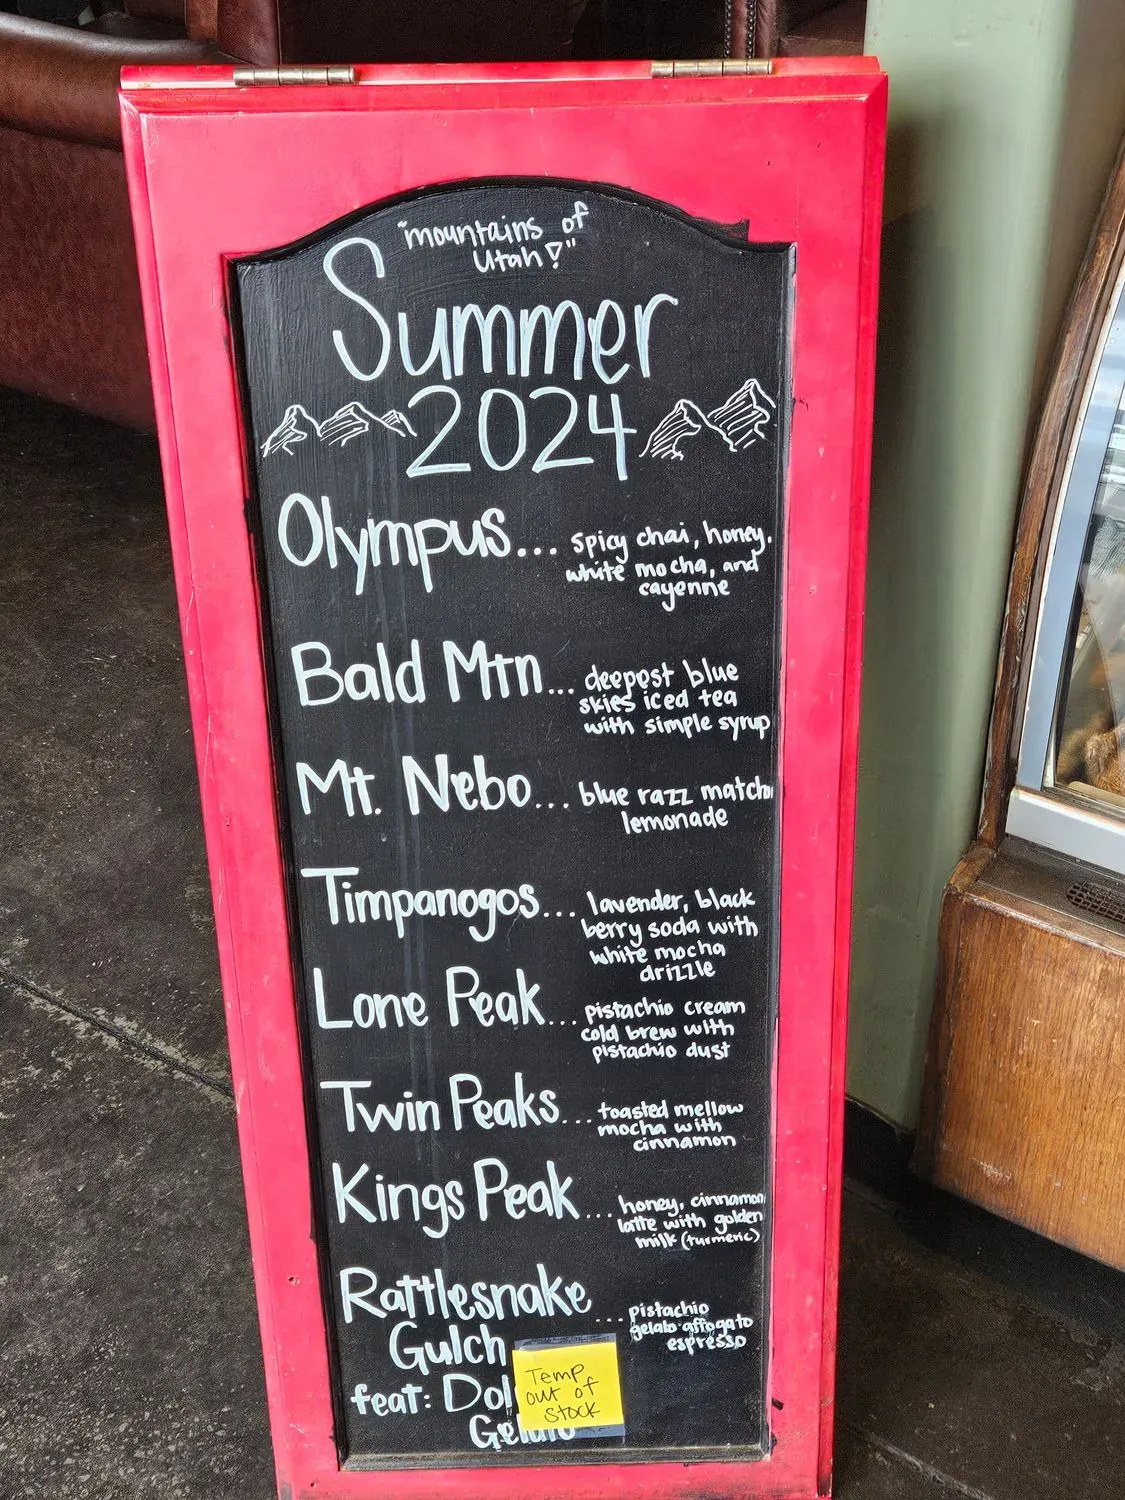 "mountains of
Utah!"
Summer
2024
Olympus... spicy chai, honey,
white mocha, and
cayenne
Bald Mtn... deepest blue
skies iced tea
with simple syrup
Mt. Nebo... blue razz matcha
lemonade
Timpanogos... lavender, black
berry soda with
white mocha
drizzle
Lone Peak... pistachio cream
cold brew with
pistachio dust
Twin Peaks... toasted mellow
mocha with
cinnamon
Kings Peak... honey, cinnamon
latte with golden
milk (turmeric)
Rattlesnake
Gulch
... pistachio
gelato affogato
espresso
feat:
Temp
out of
stock